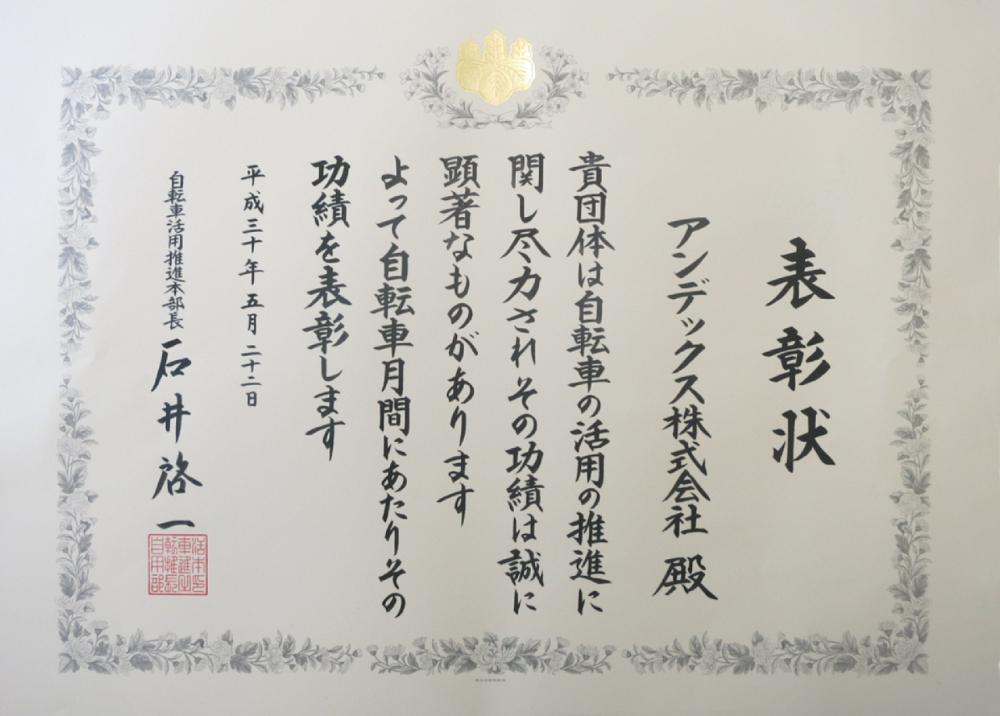 表彰状
アンデックス株式会社 殿
貴団体は自転車の活用の推進に
関し尽力されその功績は誠に
顕著なものがあります
よって自転車月間にあたりその
功績を表彰します
平成三十年五月二十二日
自転車活用推進本部長 石井啓一